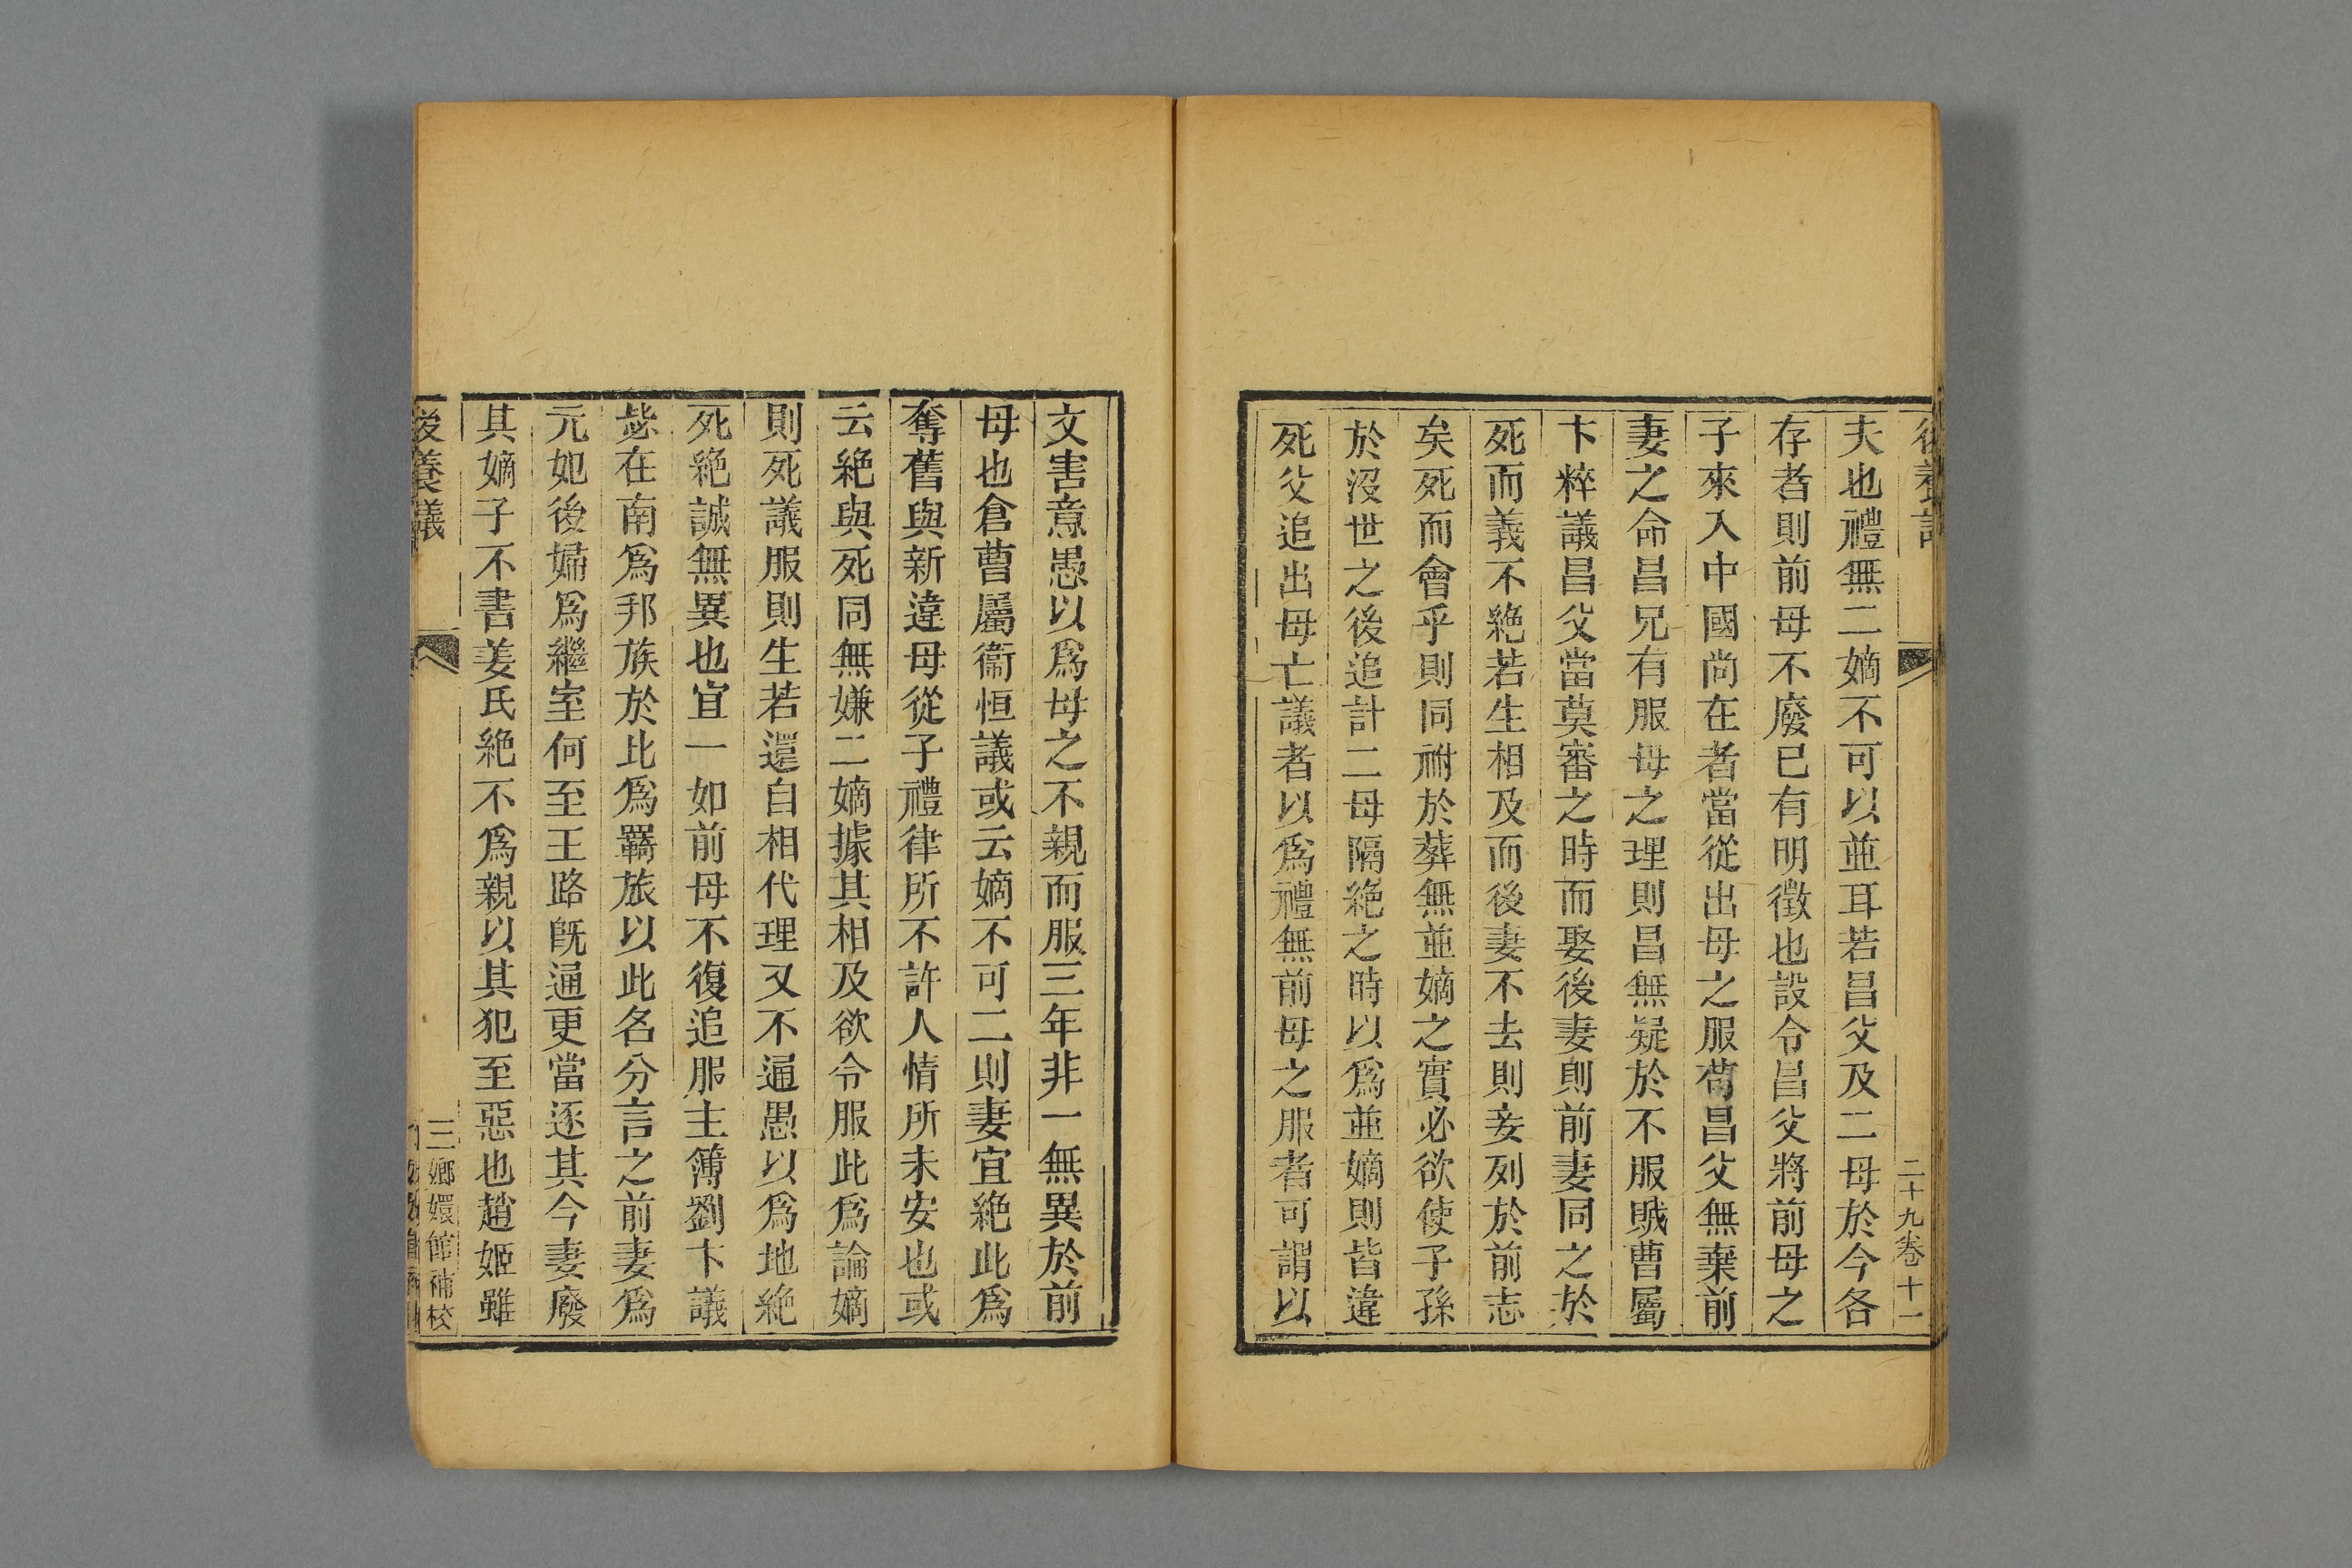 後養議
二十九卷十一
夫也禮無二嫡不可以並耳若昌父及二母於今各
存者則前母不廢已有明徵也設令昌父將前母之
子來入中國尚在者當從出母之服苟昌父無棄前
妻之命昌兄有服母之理則昌無疑於不服賊曹屬
卞粹議昌父當莫審之時而娶後妻則前妻同之於
死而義不絕若生相及而後妻不去則妾列於前志
矣死而會乎則同祔於葬無並嫡之實必欲使子孫
於沒世之後追計二母隔絕之時以爲並嫡則皆違
死父追出母亡議者以爲禮無前母之服者可謂以
文害意愚以爲母之不親而服三年非一無異於前
母也倉曹屬衞恒議或云嫡不可二則妻宜絕此爲
奪舊與新違母從子禮律所不許人情所未安也或
云絕與死同無嫌二嫡據其相及欲令服此爲論嫡
則死議服則生若還自相代理又不通愚以爲地絕
死絕誠無異也宜一如前母不復追服主簿劉卞議
毖在南爲邦族於北爲羈旅以此名分言之前妻爲
元妃後婦爲繼室何至王路旣通更當逐其今妻廢
其嫡子不書姜氏絕不爲親以其犯至惡也趙姬雖
後養議
三嫏嬛館補校